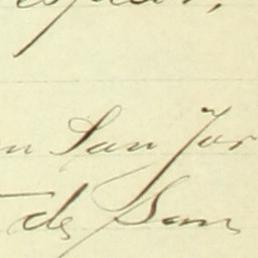 n San Jor
de San